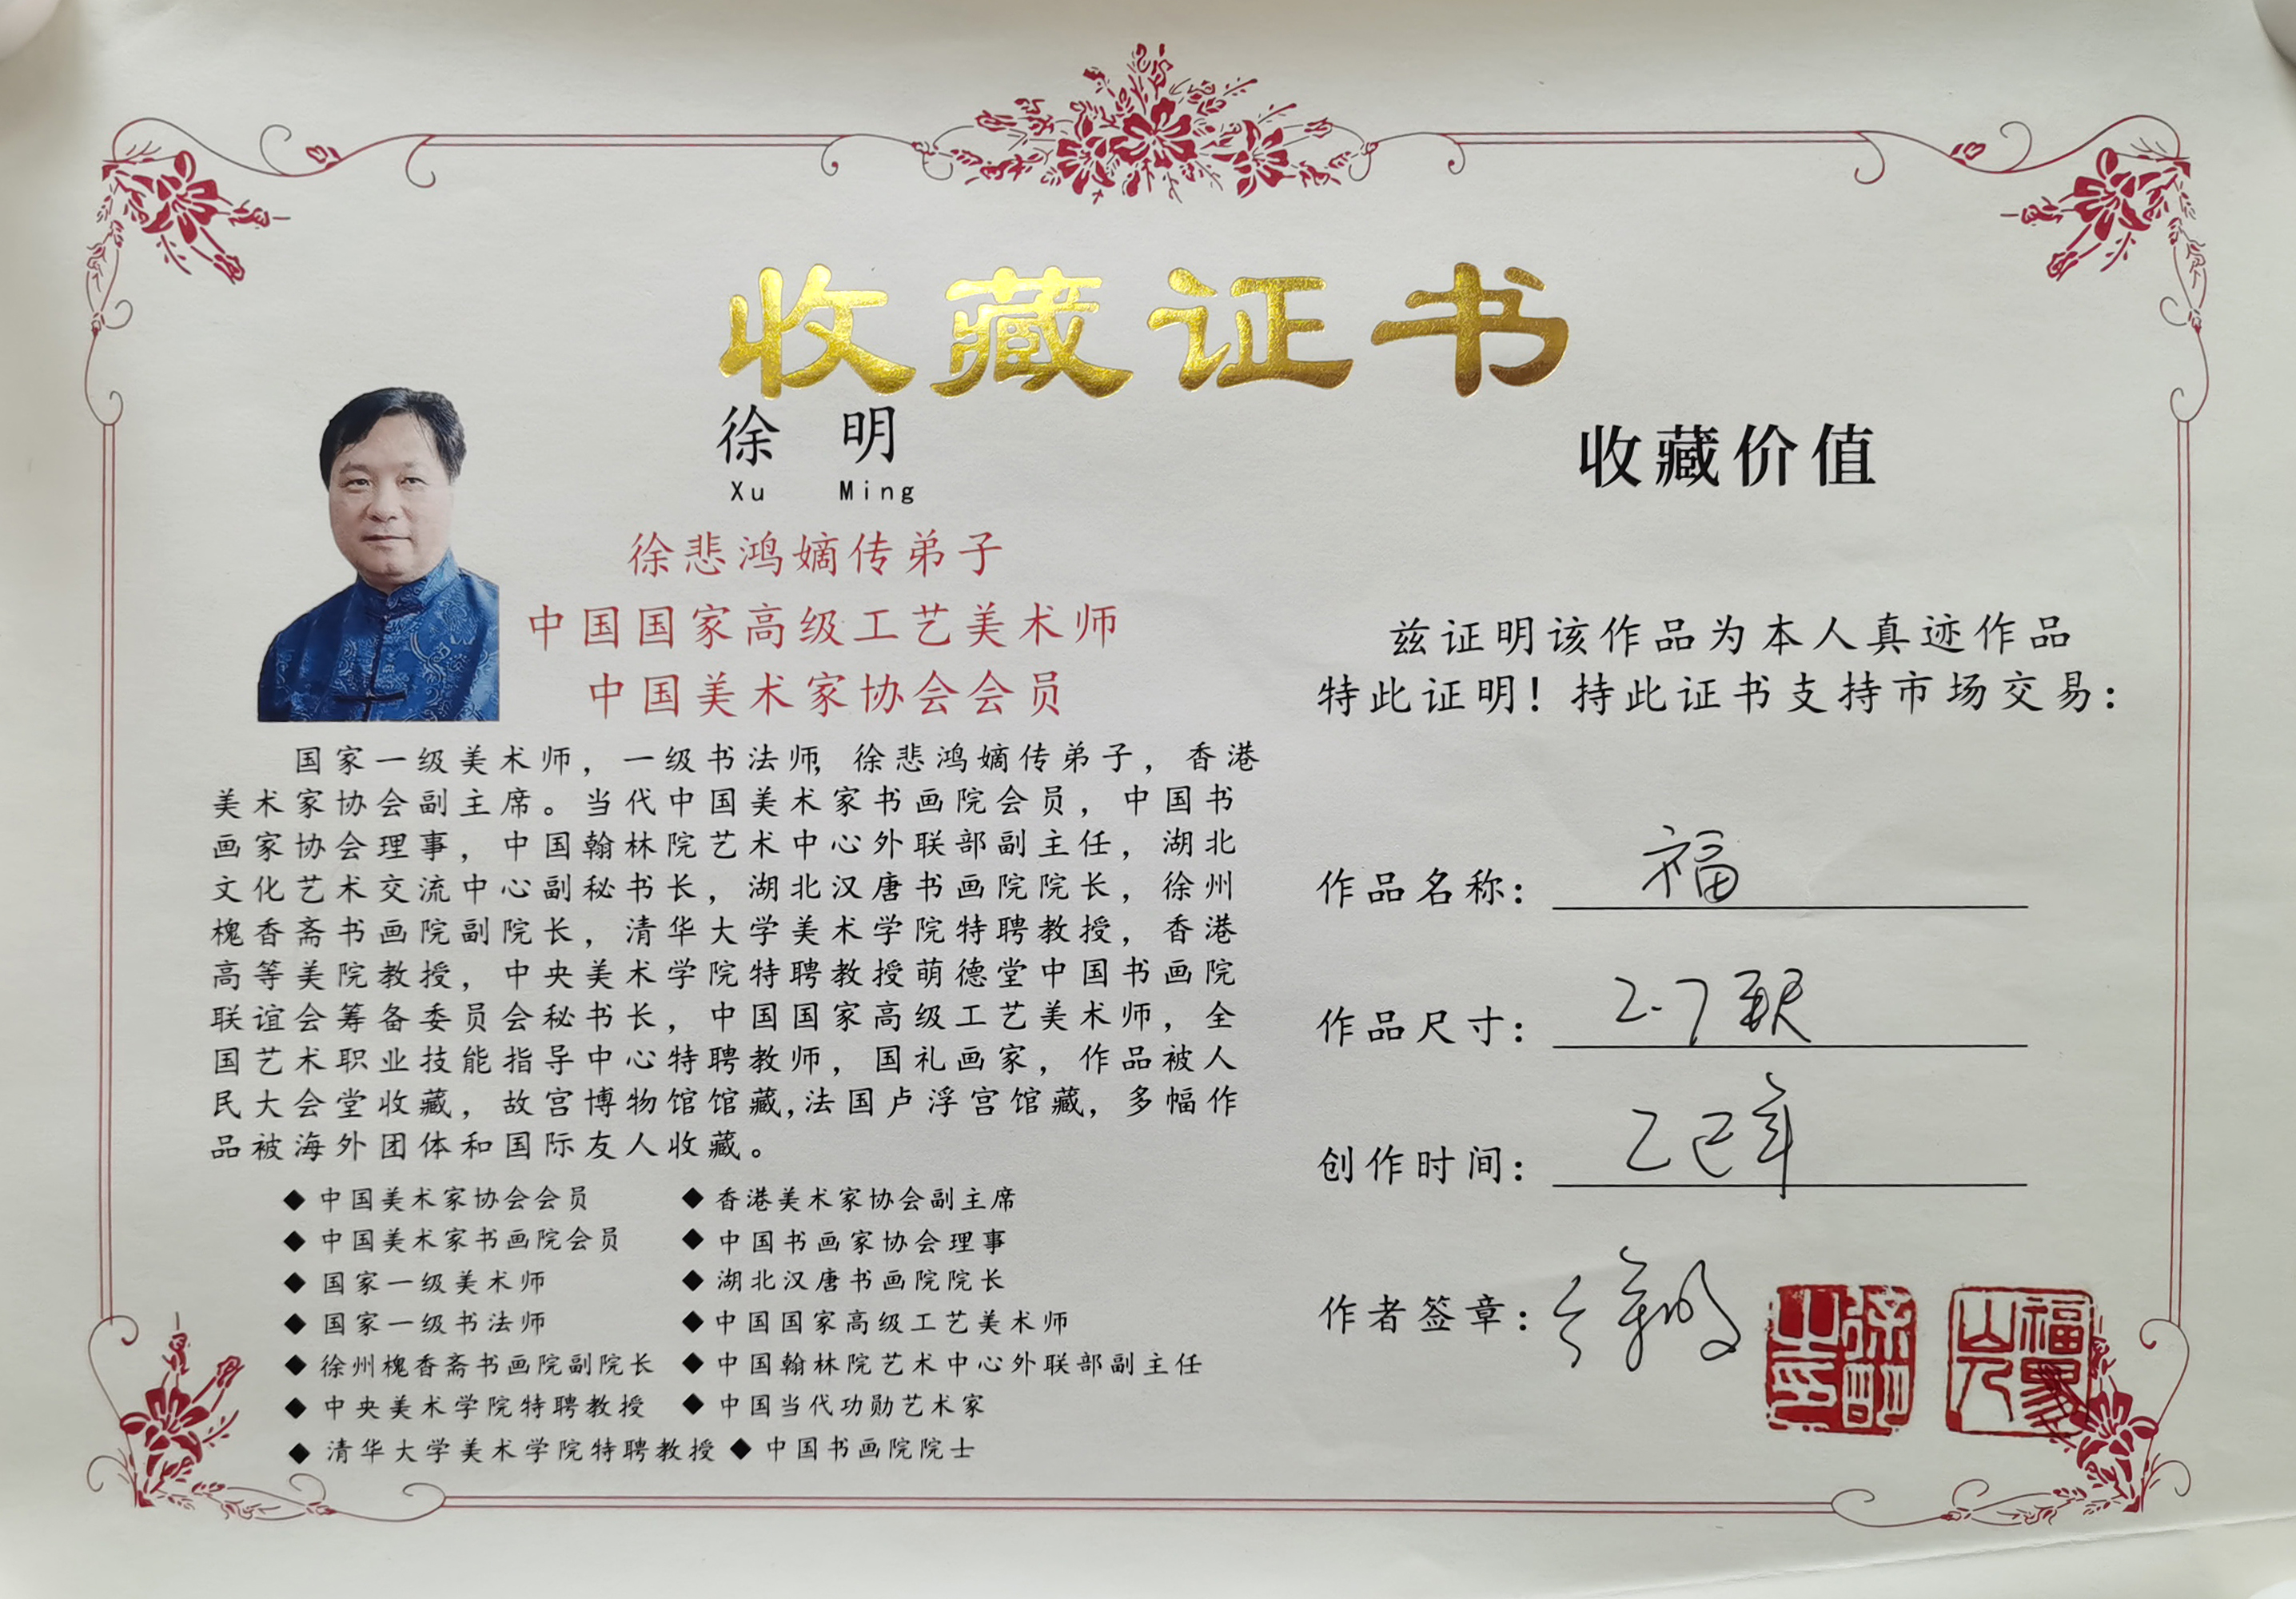 收藏证书
徐 明
Xu Ming
徐悲鸿嫡传弟子
中国国家高级工艺美术师
中国美术家协会会员
国家一级美术师，一级书法师，徐悲鸿嫡传弟子，香港
美术家协会副主席。当代中国美术家书画院会员，中国书
画家协会理事，中国翰林院艺术中心外联部副主任，湖北
文化艺术交流中心副秘书长，湖北汉唐书画院院长，徐州
槐香斋书画院副院长，清华大学美术学院特聘教授，香港
高等美院教授，中央美术学院特聘教授萌德堂中国书画院
联谊会筹备委员会秘书长，中国国家高级工艺美术师，全
国艺术职业技能指导中心特聘教师，国礼画家，作品被人
民大会堂收藏，故宫博物馆馆藏,法国卢浮宫馆藏，多幅作
品被海外团体和国际友人收藏。
◆ 中国美术家协会会员 ◆ 香港美术家协会副主席
◆ 中国美术家书画院会员 ◆ 中国书画家协会理事
◆ 国家一级美术师 ◆ 湖北汉唐书画院院长
◆ 国家一级书法师 ◆ 中国国家高级工艺美术师
◆ 徐州槐香斋书画院副院长 ◆ 中国翰林院艺术中心外联部副主任
◆ 中央美术学院特聘教授 ◆ 中国当代功勋艺术家
◆ 清华大学美术学院特聘教授 ◆ 中国书画院院士
收藏价值
兹证明该作品为本人真迹作品
特此证明！持此证书支持市场交易：
作品名称： 福
作品尺寸： 2.7
创作时间： 乙巳年
作者签章：